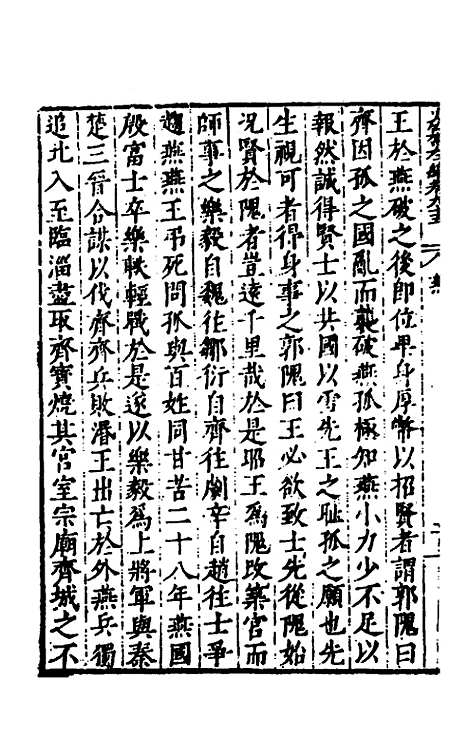 王於燕破之後即位卑身厚幣以招賢者謂郭隗曰
齊因孤之國亂而襲破燕孤極知燕小力少不足以
報然誠得賢士以共國以雪先王之耻孤之願也先
生視可者得身事之郭隗曰王必欲致士先從隗始
况賢於隗者豈遠千里哉於是昭王爲隗改築宮而
師事之樂毅自魏往鄒衍自齊往劇辛自趙往士爭
趨燕燕王弔死問孤與百姓同甘苦二十八年燕國
殷富士卒樂軼輕戰於是遂以樂毅爲上將軍與秦
楚三晉合謀以伐齊齊兵敗湣王出亡於外燕兵獨
追北入至臨淄盡取齊寶燒其宮室宗廟齊城之不